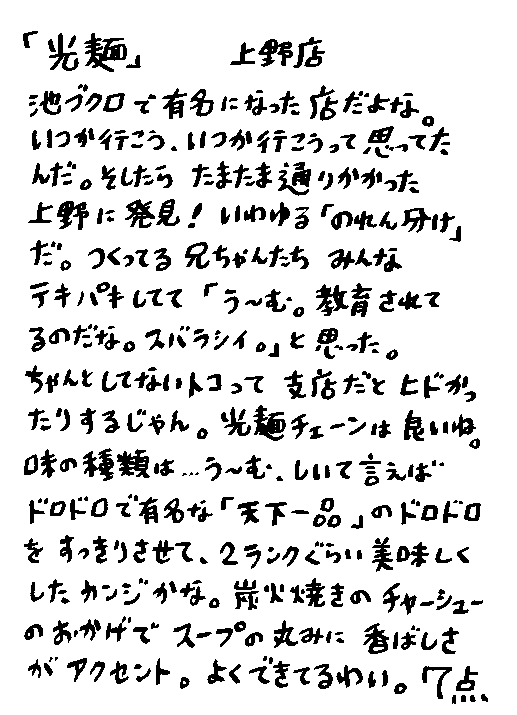 「光麺」　　上野店
池ブクロで有名になった店だよな。
いつか行こう、いつか行こうって思ってた
んだ。そしたら たまたま通りかかった
上野に発見！ いわゆる「のれん分け」
だ。つくってる兄ちゃんたち みんな
テキパキしてて「う〜む。教育されて
るのだな。スバラシイ。」と思った。
ちゃんとしてないトコって 支店だとヒドかっ
たりするじゃん。光麺チェーンは良いね。
味の種類は…う〜む、しいて言えば
ドロドロで有名な「天下一品」のドロドロ
を すっきりさせて、2ランクぐらい美味しく
したカンジかな。炭火焼きのチャーシュー
のおかげで スープの丸みに 香ばしさ
がアクセント。よくできてるわい。7点